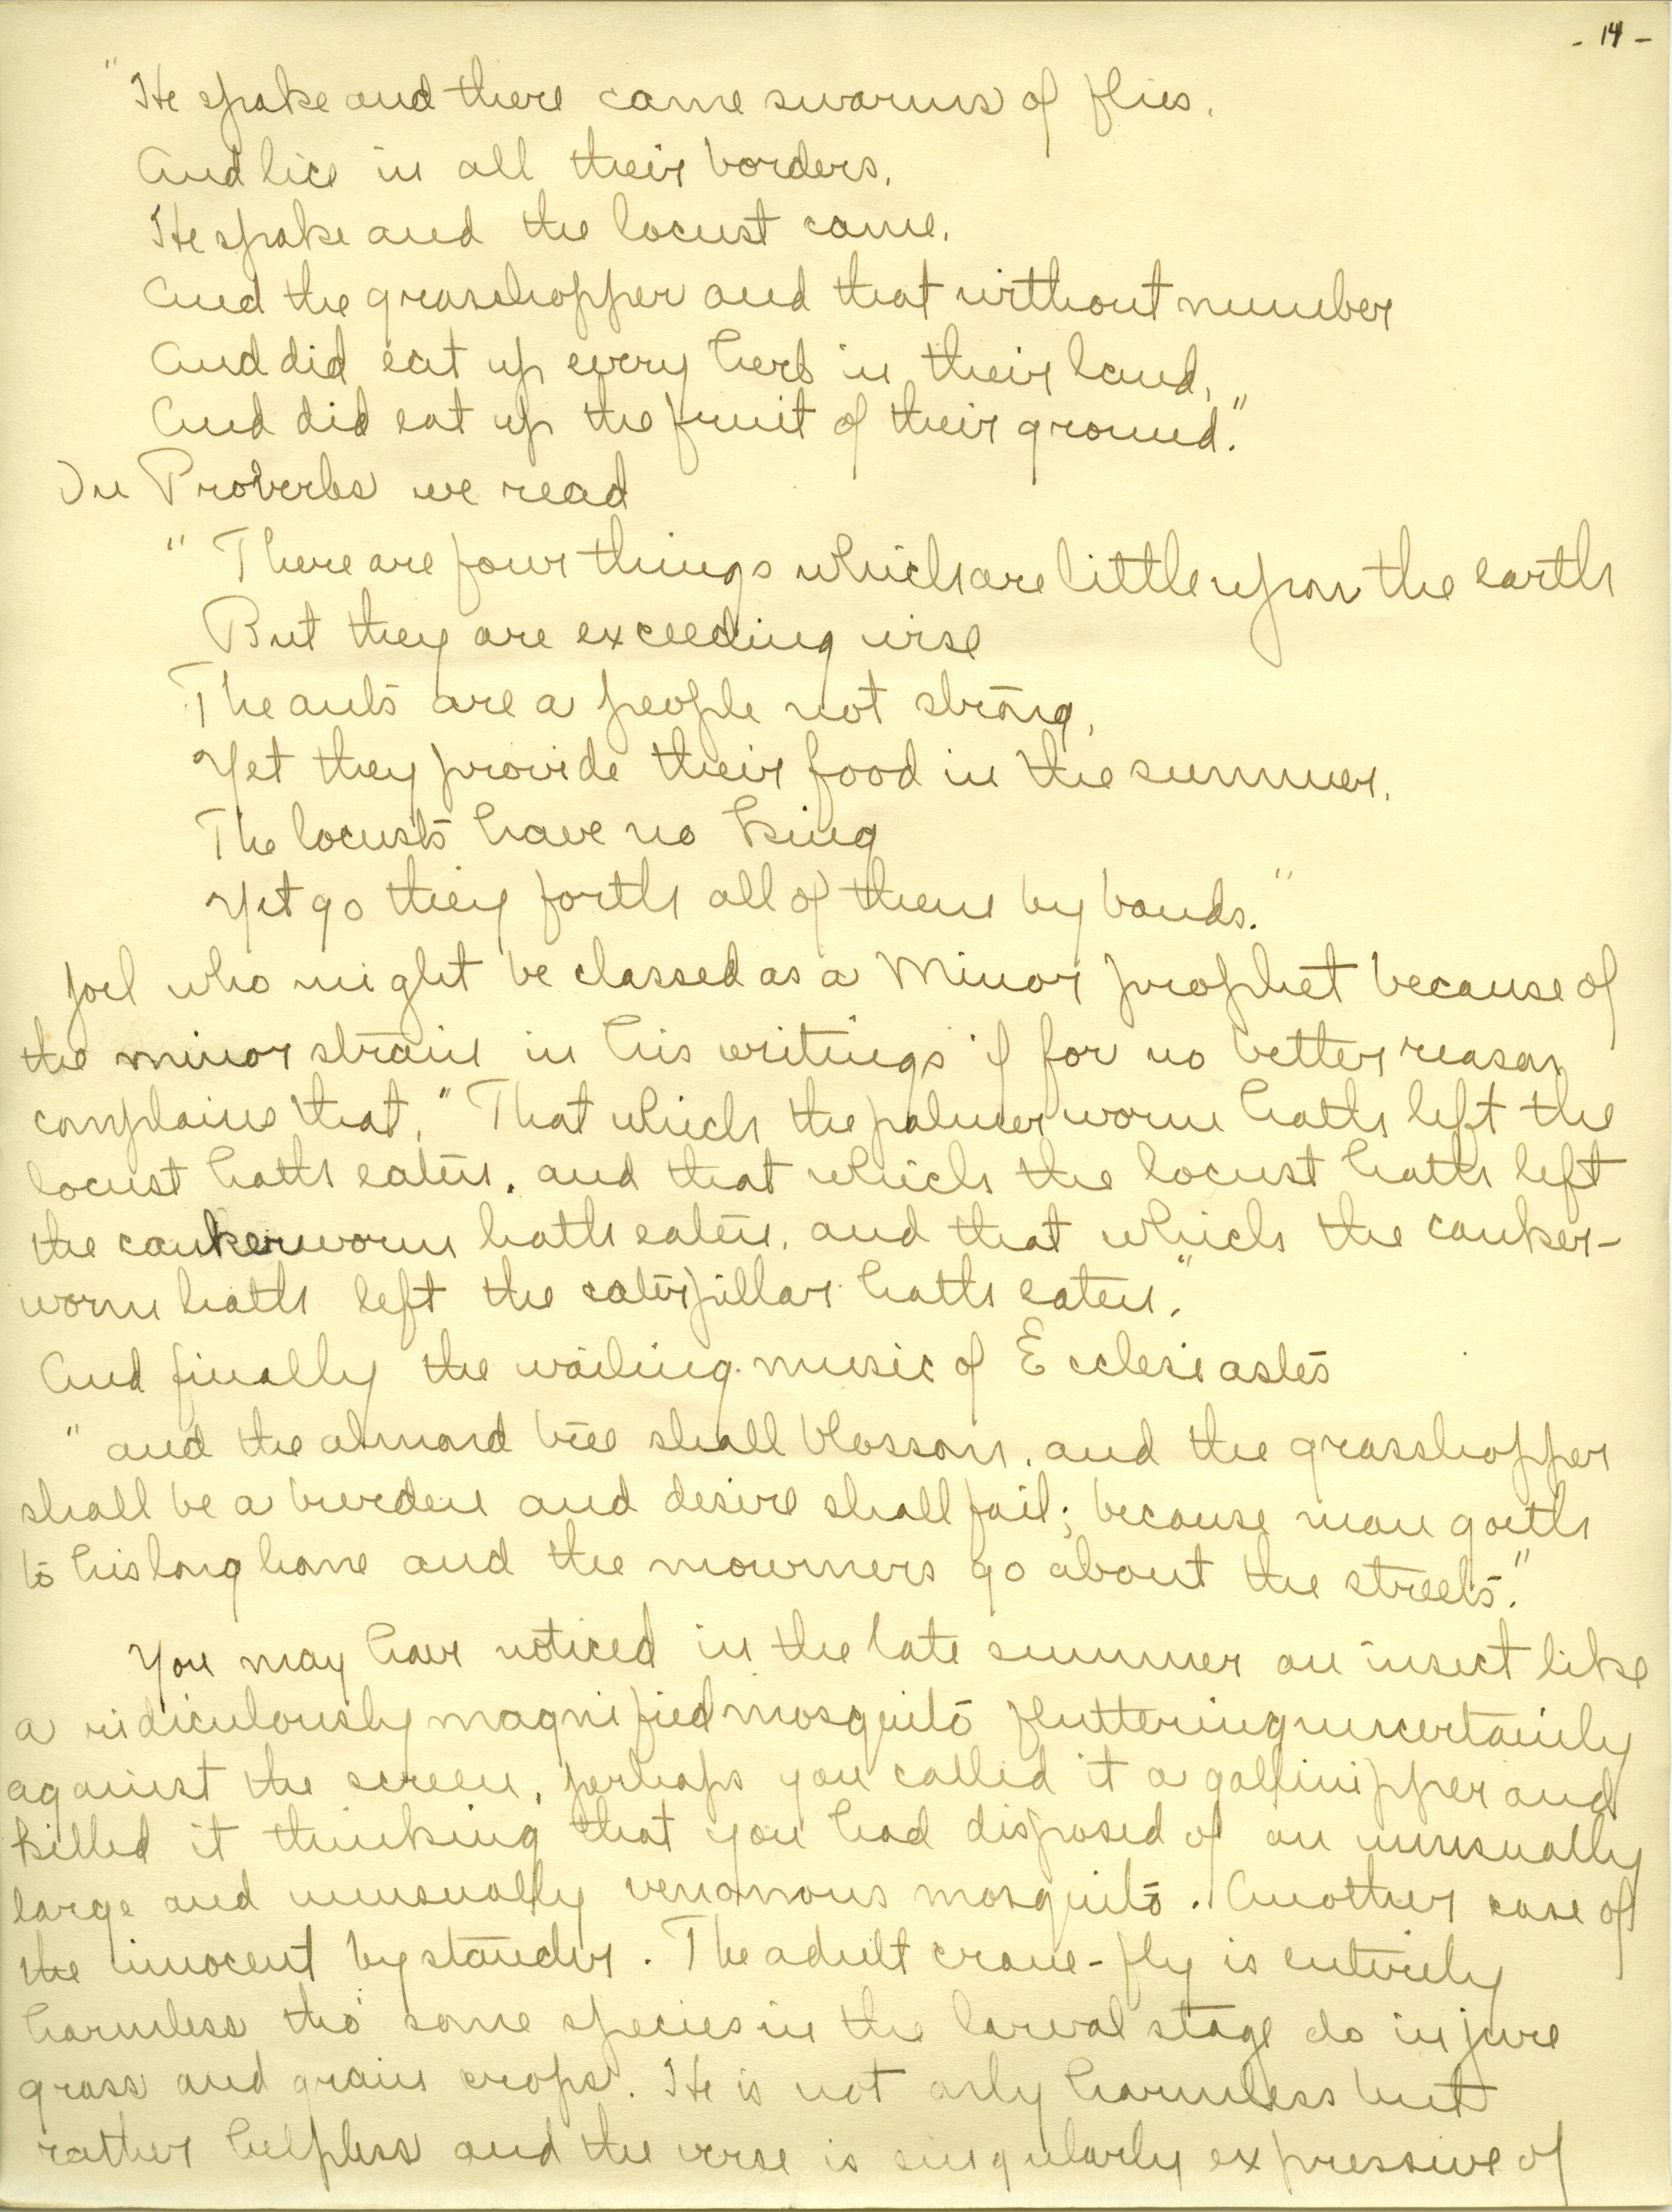 - 14 -
"He spake and there came swarms of flies.
And lice in all their borders.
He spake and the locust came.
And the grasshopper and that without number
And did eat up every herb in their land,
And did eat up the fruit of their ground."
In Proverbs we read
" There are four things which are little upon the earth
But they are exceeding wise
The ants are a people not strong,
Yet they provide their food in the summer.
The locusts have no king
Yet go they forth all of them by bands."
Joel who might be classed as a Minor prophet because of
the minor strain in his writings if for no better reason
complains that, "That which the palmer worm hath left the
locust hath eaten. and that which the locust hath left
the cankerworm hath eaten. and that which the canker-
worm hath left the caterpillar hath eaten."
And finally the wailing music of Ecclesiastes
" and the almond tree shall blossom. and the grasshopper
shall be a burden and desire shall fail; because man goeth
to his long home and the mourners go about the streets."
You may have noticed in the late summer an insect like
a ridiculously magnified mosquito fluttering uncertainly
against the screen, perhaps you called it a gallinipper and
killed it thinking that you had disposed of an unusually
large and unusually venomous mosquito. Another case of
the innocent bystander. The adult crane-fly is entirely
harmless tho' some species in the larval stage do injure
grass and grain crops. He is not only harmless but
rather helpless and the verse is singularly expressive of